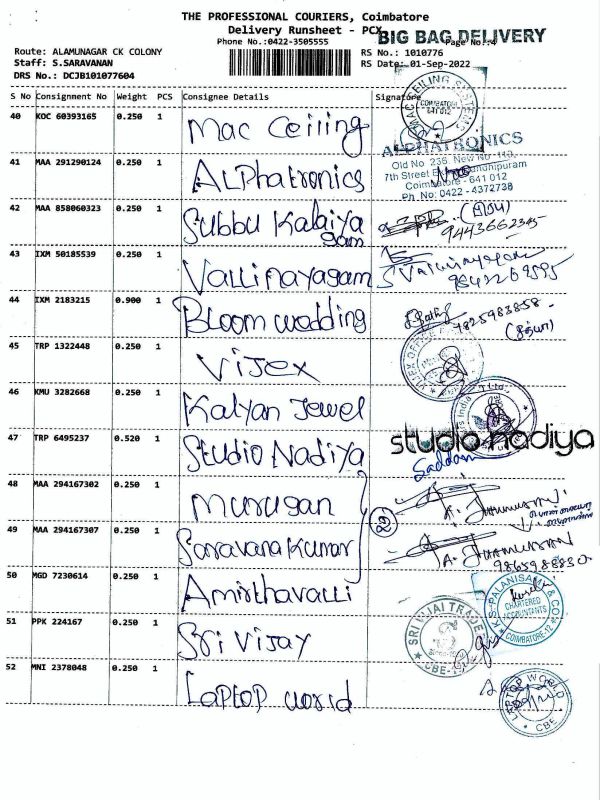 THE PROFESSIONAL COURIERS, Coimbatore
Delivery Runsheet - PCX BIG BAG DELIVERY
Phone No.:0422-3505555 Page No.:4
Route: ALAMUNAGAR CK COLONY RS No.: 1010776
Staff: S.SARAVANAN RS Date: 01-Sep-2022
DRS No.: DCJB101077604
S No Consignment No Weight PCS Consignee Details Signature
40 KOC 60393165 0.250 1 Mac Ceiling
MAC CEILING SYSTEMS
COIMBATORE
641 012
41 MAA 291290124 0.250 1 ALPhatronics
ALPHATRONICS
Old No. 236, New No. 113,
7th Street
Coimbatore - 641 012
Ph. No: 0422 - 4372738
42 MAA 858060323 0.250 1 Subbu Kalaiya
gam
9443662345
43 IXM 50185539 0.250 1 Vallinayagam
44 IXM 2183215 0.900 1 Bloom wedding
9825983858
45 TRP 1322448 0.250 1 Vijex
46 KMU 3282668 0.250 1 Kalyan Jewel
47 TRP 6495237 0.520 1 Studio Nadiya
studio nadiya
Saddam
48 MAA 294167302 0.250 1 Murugan
49 MAA 294167307 0.250 1 Saravana Kumar
9865988830
50 MGD 7230614 0.250 1 Amirthavalli
K.S. PALANISAMY & CO.
CHARTERED
ACCOUNTANTS
COIMBATORE-12
51 PPK 224167 0.250 1 Sri Vijay
SRI VIJAI
CBE-
52 MNI 2378048 0.250 1 Laptop world
LAPTOP WORLD
CBE